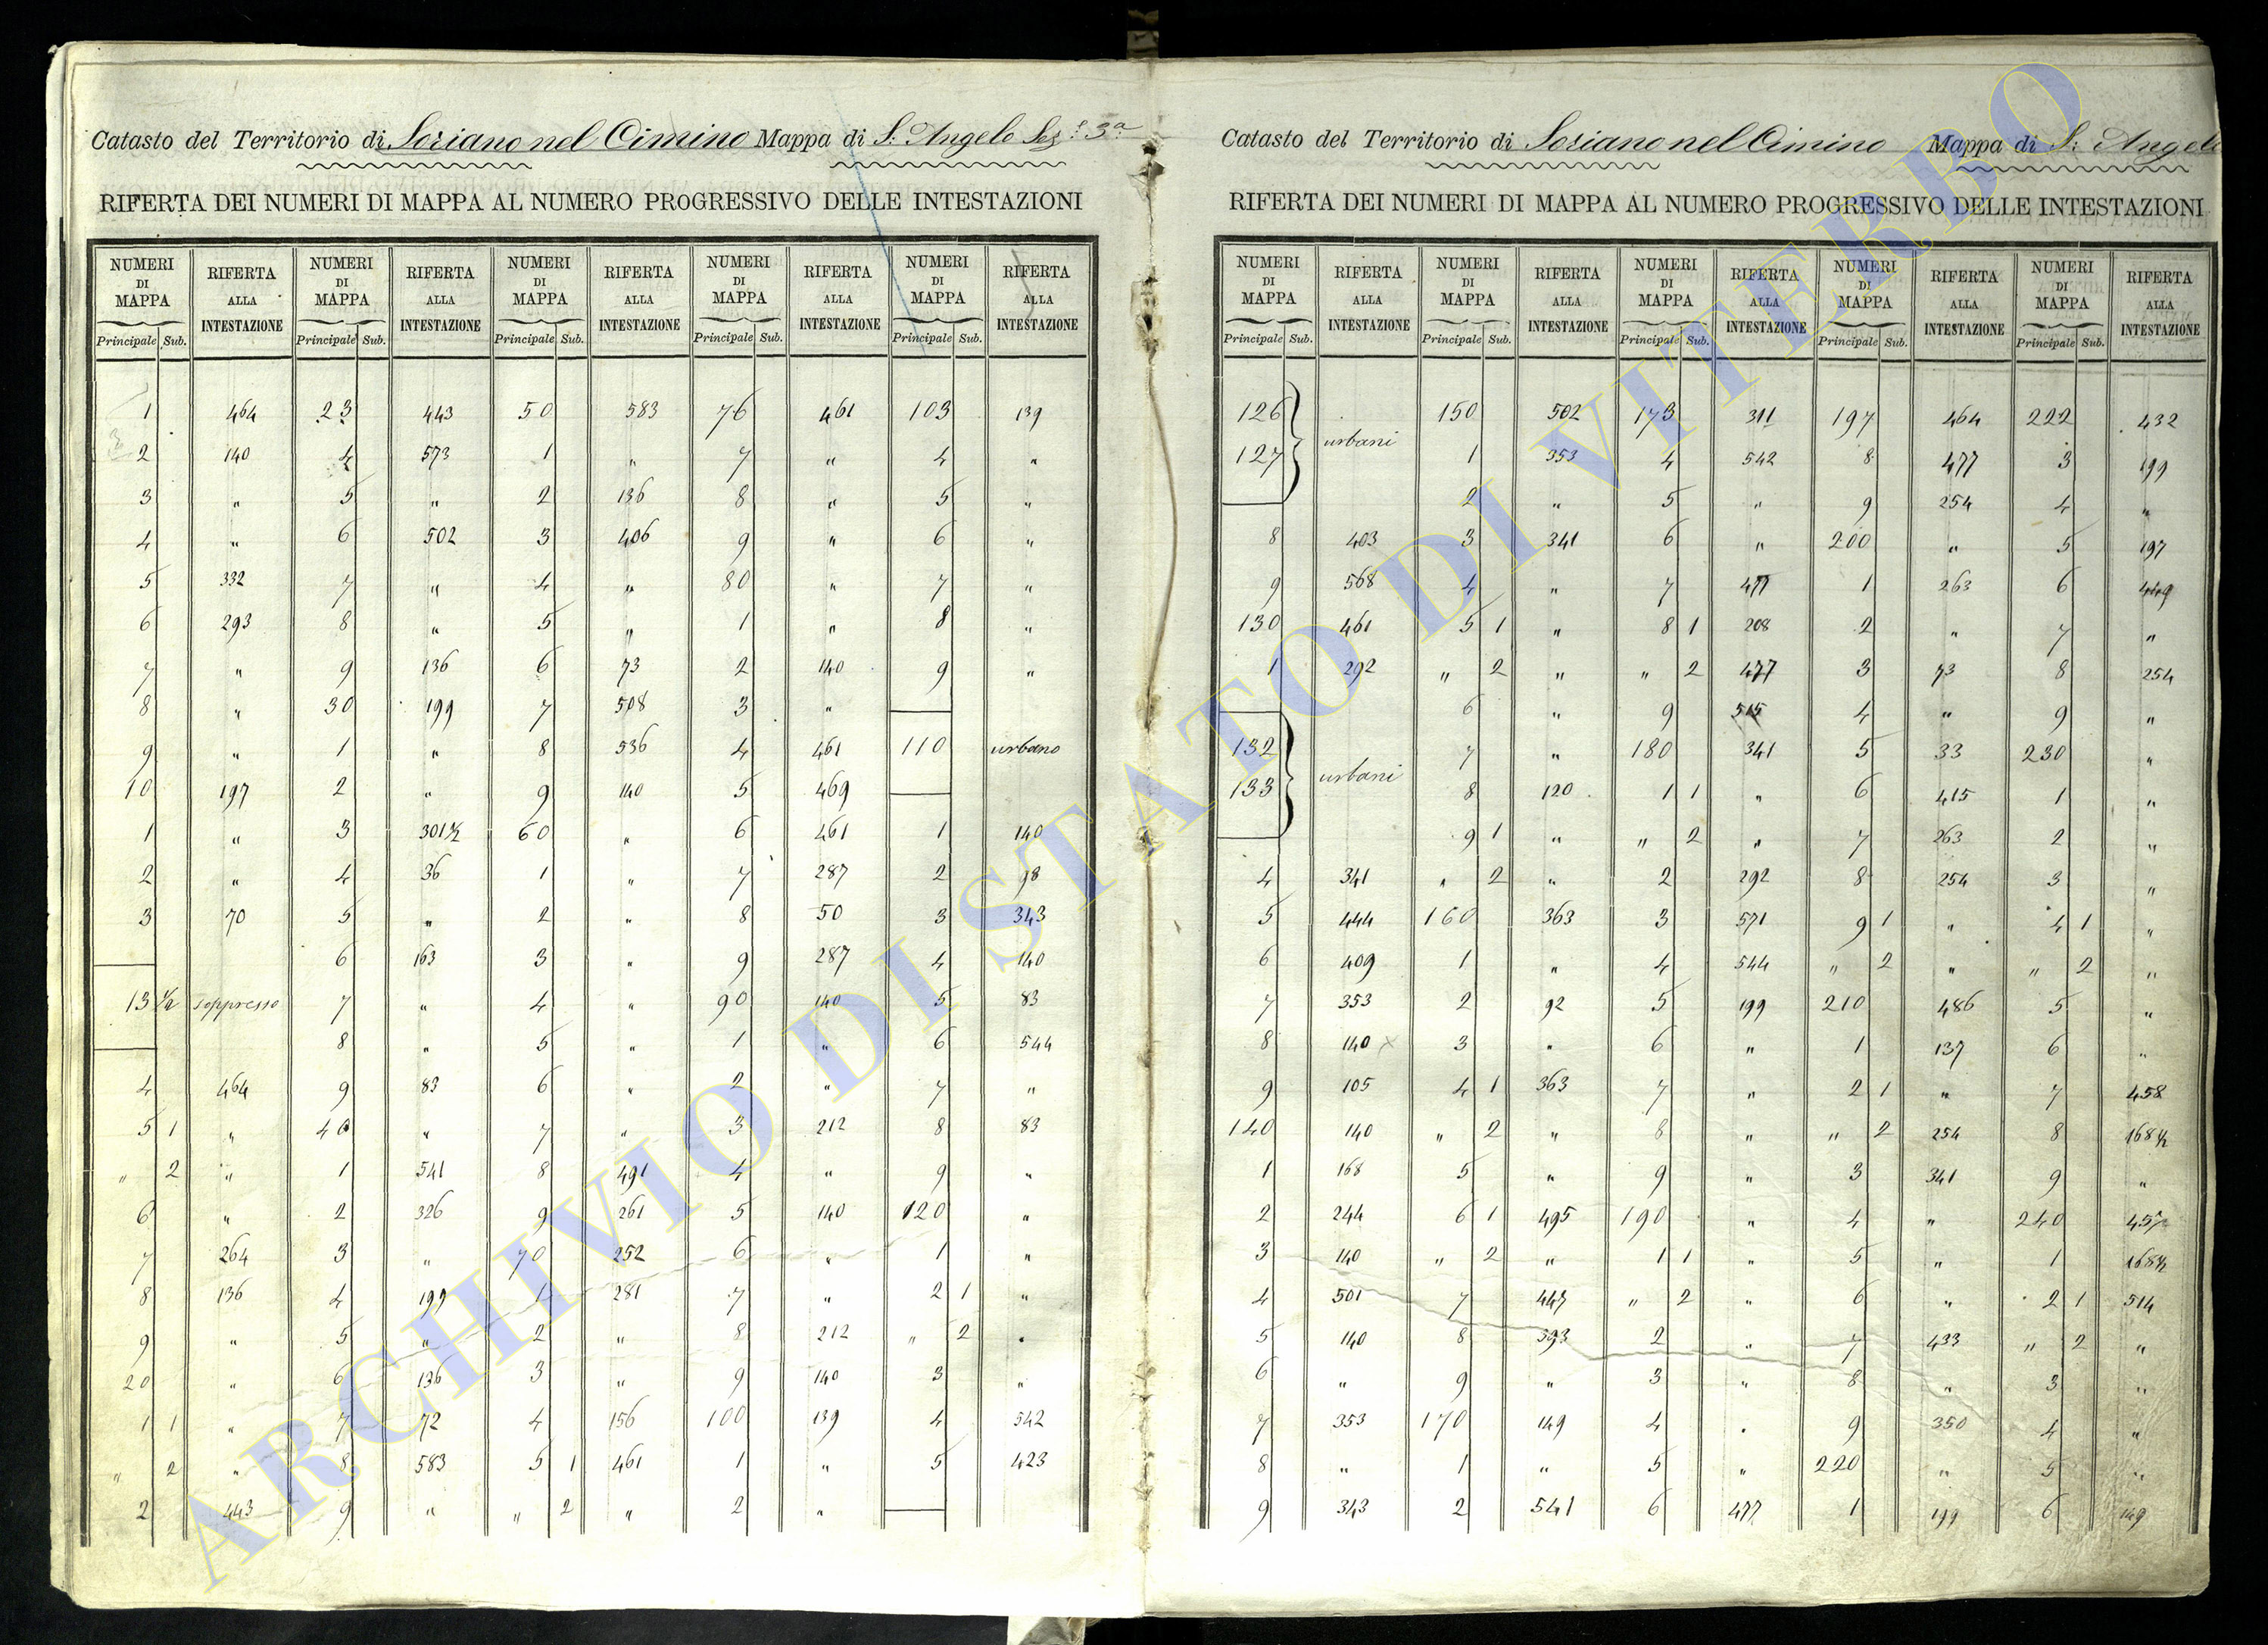 Catasto del Territorio di Soriano nel Cimino Mappa di S. Angelo Sez.e 3a
RIFERTA DEI NUMERI DI MAPPA AL NUMERO PROGRESSIVO DELLE INTESTAZIONI
NUMERI DI MAPPA RIFERTA ALLA INTESTAZIONE NUMERI DI MAPPA RIFERTA ALLA INTESTAZIONE NUMERI DI MAPPA RIFERTA ALLA INTESTAZIONE NUMERI DI MAPPA RIFERTA ALLA INTESTAZIONE NUMERI DI MAPPA RIFERTA ALLA INTESTAZIONE
Principale Sub. Principale Sub. Principale Sub. Principale Sub. Principale Sub.
1 464 23 443 50 583 76 461 103 139
2 140 4 573 1 " 7 " 4 "
3 " 5 " 2 136 8 " 5 "
4 " 6 502 3 406 9 " 6 "
5 332 7 " 4 " 80 " 7 "
6 293 8 " 5 " 1 " 8 "
7 " 9 136 6 73 2 140 9 "
8 " 30 199 7 508 3 "
9 " 1 " 8 536 4 461 110 urbano
10 197 2 " 9 140 5 469
1 " 3 301½ 60 " 6 461 1 140
2 " 4 36 1 " 7 287 2 98
3 70 5 " 2 " 8 50 3 343
6 163 3 " 9 287 4 140
13 ½ soppresso 7 " 4 " 90 140 5 83
8 " 5 " 1 " 6 544
4 464 9 83 6 " 2 " 7 "
5 1 " 40 " 7 " 3 212 8 83
" 2 " 1 541 8 491 4 " 9 "
6 " 2 326 9 261 5 140 120 "
7 264 3 " 70 252 6 " 1 "
8 136 4 199 1 281 7 " 2 1 "
9 " 5 " 2 " 8 212 " 2 "
20 " 6 136 3 " 9 140 3 "
1 1 " 7 72 4 156 100 139 4 542
" 2 " 8 583 5 1 461 1 " 5 423
2 443 9 " " 2 " 2 "
Catasto del Territorio di Soriano nel Cimino Mappa di S. Angelo
RIFERTA DEI NUMERI DI MAPPA AL NUMERO PROGRESSIVO DELLE INTESTAZIONI
NUMERI DI MAPPA RIFERTA ALLA INTESTAZIONE NUMERI DI MAPPA RIFERTA ALLA INTESTAZIONE NUMERI DI MAPPA RIFERTA ALLA INTESTAZIONE NUMERI DI MAPPA RIFERTA ALLA INTESTAZIONE NUMERI DI MAPPA RIFERTA ALLA INTESTAZIONE
Principale Sub. Principale Sub. Principale Sub. Principale Sub. Principale Sub.
126 urbani 150 502 173 311 197 464 222 432
127 1 353 4 542 8 477 3 199
2 " 5 " 9 254 4 "
8 403 3 341 6 " 200 " 5 197
9 568 4 " 7 477 1 263 6 449
130 461 5 1 " 8 1 208 2 " 7 "
1 292 " 2 " " 2 477 3 73 8 254
6 " 9 515 4 " 9 "
132 urbani 7 " 180 341 5 33 230 "
133 8 120 1 1 " 6 415 1 "
9 1 " " 2 " 7 263 2 "
4 341 " 2 " 2 292 8 254 3 "
5 444 160 363 3 571 9 1 " 4 1 "
6 409 1 " 4 544 " 2 " " 2 "
7 353 2 92 5 199 210 486 5 "
8 140 3 " 6 " 1 137 6 "
9 105 4 1 363 7 " 2 1 " 7 458
140 140 " 2 " 8 " " 2 254 8 168½
1 168 5 " 9 " 3 341 9 "
2 244 6 1 495 190 " 4 " 240 457
3 140 " 2 " 1 1 " 5 " 1 168½
4 501 7 447 " 2 " 6 " 2 1 514
5 140 8 393 2 " 7 433 " 2 "
6 " 9 " 3 " 8 " 3 "
7 353 170 149 4 " 9 350 4 "
8 " 1 " 5 " 220 " 5 "
9 343 2 541 6 477 1 199 6 149
ARCHIVIO DI STATO DI VITERBO